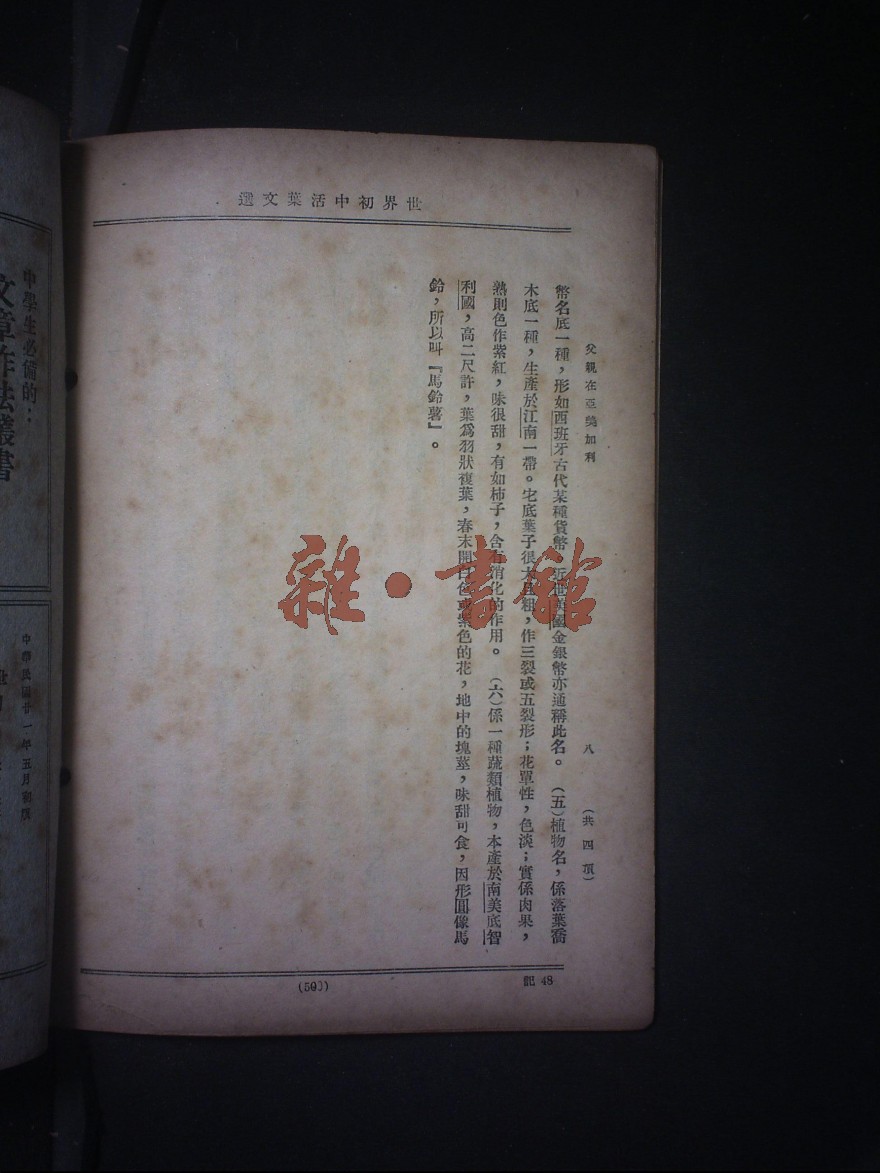 世界初中活葉文選
父親在亞美加利
八
（共四頁）
幣名底一種，形如西班牙古代某種貨幣，近世英國金銀幣亦通稱此名。（五）植物名，係落葉喬
木底一種，生產於江南一帶。它底葉子很大且粗，作三裂或五裂形；花單性，色淡；實係肉果，
熟則色作紫紅，味很甜，有如柿子，含有消化的作用。（六）係一種蔬類植物，本產於南美底智
利國，高二尺許，葉爲羽狀複葉，春末開白色或紫色的花，地中的塊莖，味甜可食，因形圓像馬
鈴，所以叫『馬鈴薯』。
48
雜·書館
中學生必備的：
文章作法叢書
中華民國廿一年五月初版